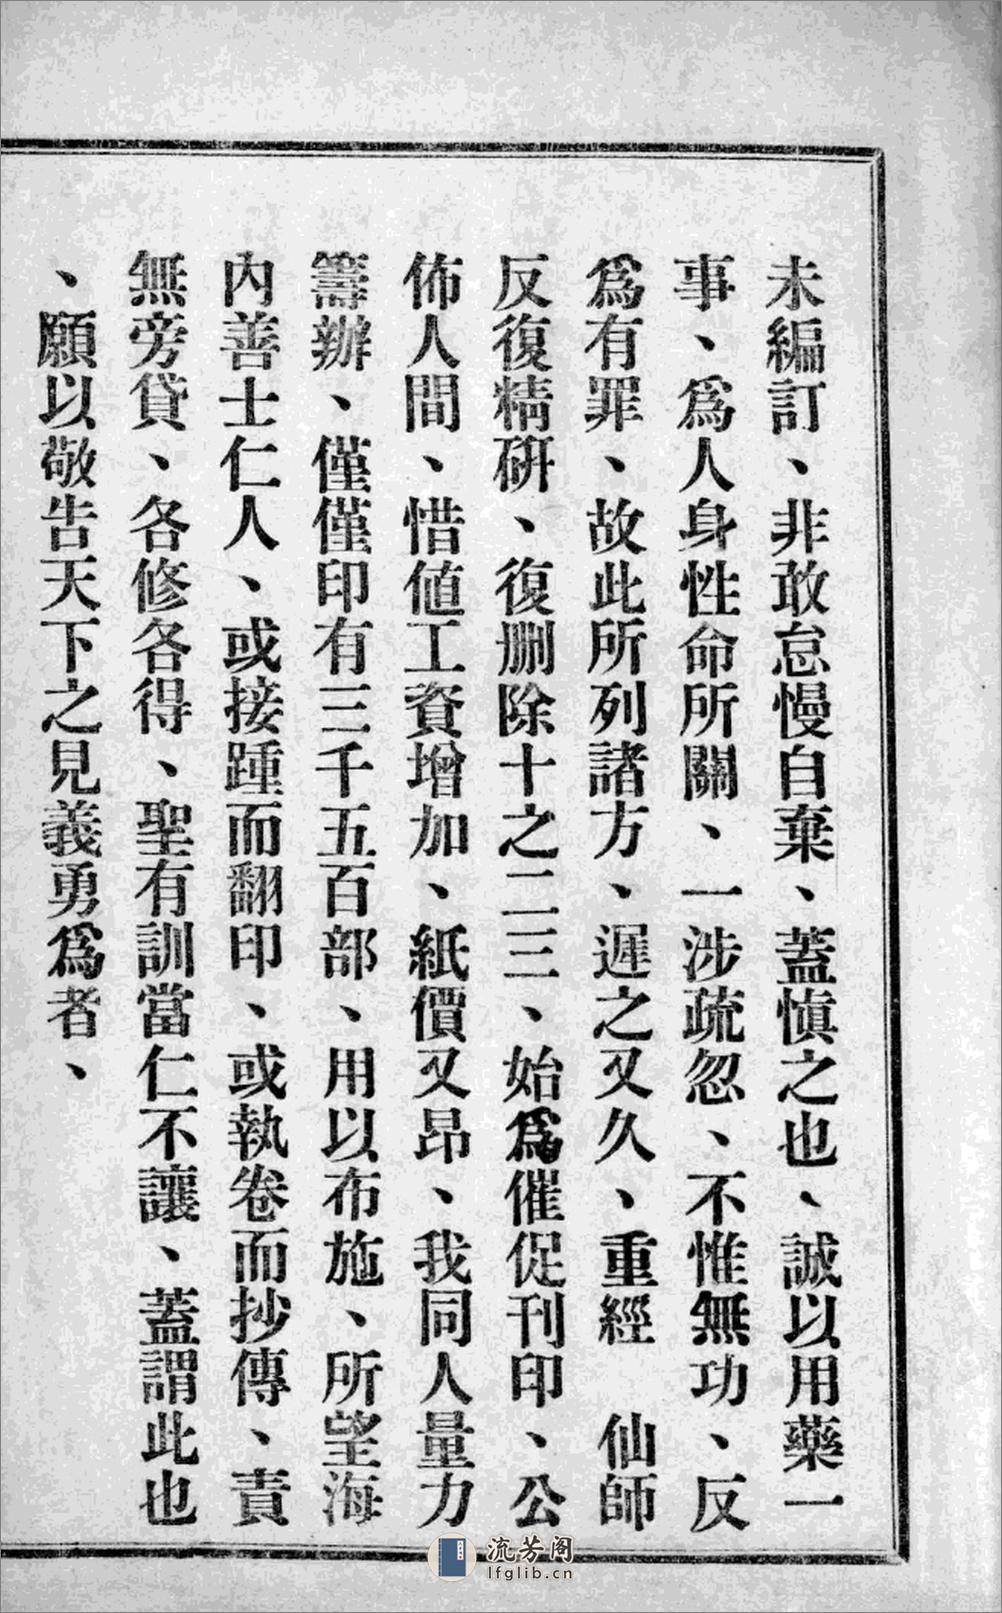 未編訂、非敢怠慢自棄、蓋慎之也、誠以用藥一
事、爲人身性命所關、一涉疏忽、不惟無功、反
爲有罪、故此所列諸方、遲之又久、重經　仙師
反復精硏、復删除十之二三、始爲催促刊印、公
佈人間、惜値工資增加、紙價又昂、我同人量力
籌辦、僅僅印有三千五百部、用以布施、所望海
內善士仁人、或接踵而翻印、或執卷而抄傳、責
無旁貸、各修各得、聖有訓當仁不讓、蓋謂此也
、願以敬告天下之見義勇爲者、
流芳阁
lfglib.cn